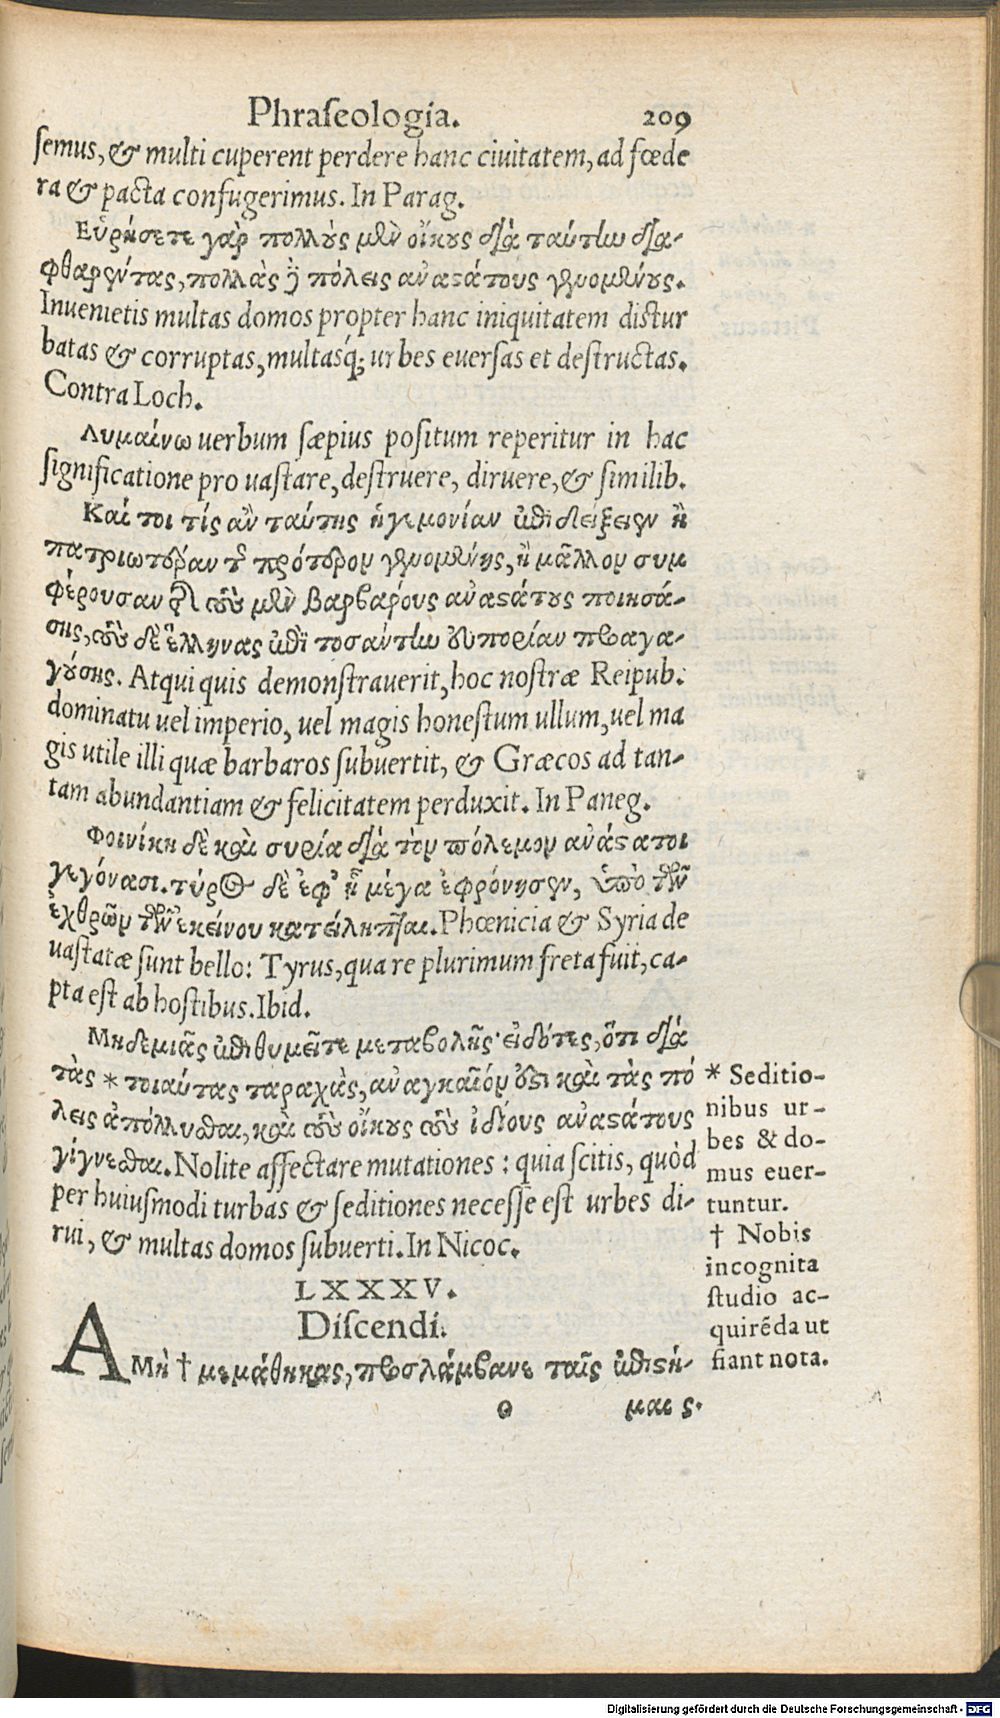 Phraſeologia. 209
ſemus, & multi cuperent perdere hanc ciuitatem, ad fœde
ra & pacta confugerimus. In Parag.
Εὑρήσετε γὰρ πολλοὺς μὲν οἴκους διὰ ταύτην δια-
φθαρέντας, πολλὰς δὲ πόλεις ἀναστάτους γενομένους.
Inuenietis multas domos propter hanc iniquitatem diſtur
batas & corruptas, multasq́; urbes euerſas et deſtructas.
Contra Loch.
Λυμαίνω uerbum ſæpius poſitum reperitur in hac
ſignificatione pro uaſtare, deſtruere, diruere, & ſimilib.
Καί τοι τίς ἂν ταύτης ἡγεμονίαν ἐπιδείξειεν ἢ
πατριωτέραν τ͂ πρότερον γενομένης, ἢ μᾶλλον συμ
φέρουσαν τῆ τοὺς μὲν βαρβάρους ἀναστάτους ποιησά-
σης, τοὺς δὲ ἕλληνας ἐπὶ τοσαύτην εὐπορίαν προαγα-
γούσης. Atqui quis demonſtrauerit, hoc noſtræ Reipub.
dominatu uel imperio, uel magis honeſtum ullum, uel ma
gis utile illi quæ barbaros ſubuertit, & Græcos ad tan-
tam abundantiam & felicitatem perduxit. In Paneg.
Φοινίκη δὲ καὶ συρία διὰ τὸν πόλεμον ἀνάστατοι
γεγόνασι. τύρος δὲ ἐφ' ᾗ μέγα ἐφρόνησεν, ὑπὸ τῶν
ἐχθρῶν τῶν ἐκείνου κατείληπται. Phœnicia & Syria de
uaſtatæ ſunt bello: Tyrus, qua re plurimum freta fuit, ca-
pta eſt ab hoſtibus. Ibid.
Μηδεμιᾶς ἐπιθυμεῖτε μεταβολῆς· εἰδότες, ὅτι διὰ
τὰς * τοιαύτας ταραχὰς, ἀναγκαῖόν ἐστι καὶ τὰς πό
λεις ἀπόλλυσθαι, καὶ τοὺς οἴκους τοὺς ἰδίους ἀναστάτους
γίγνεσθαι. Nolite affectare mutationes: quia ſcitis, quòd
per huiuſmodi turbas & ſeditiones neceſſe eſt urbes di-
rui, & multas domos ſubuerti. In Nicoc.
LXXXV.
Diſcendi.
Α Μὴ † μεμάθηκας, προσλάμβανε ταῖς ἐπιστή-
ο μαις.
* Seditio-
nibus ur-
bes & do-
mus euer-
tuntur.
† Nobis
incognita
ſtudio ac-
quirẽda ut
fiant nota.
Digitalisierung gefördert durch die Deutsche Forschungsgemeinschaft - DFG